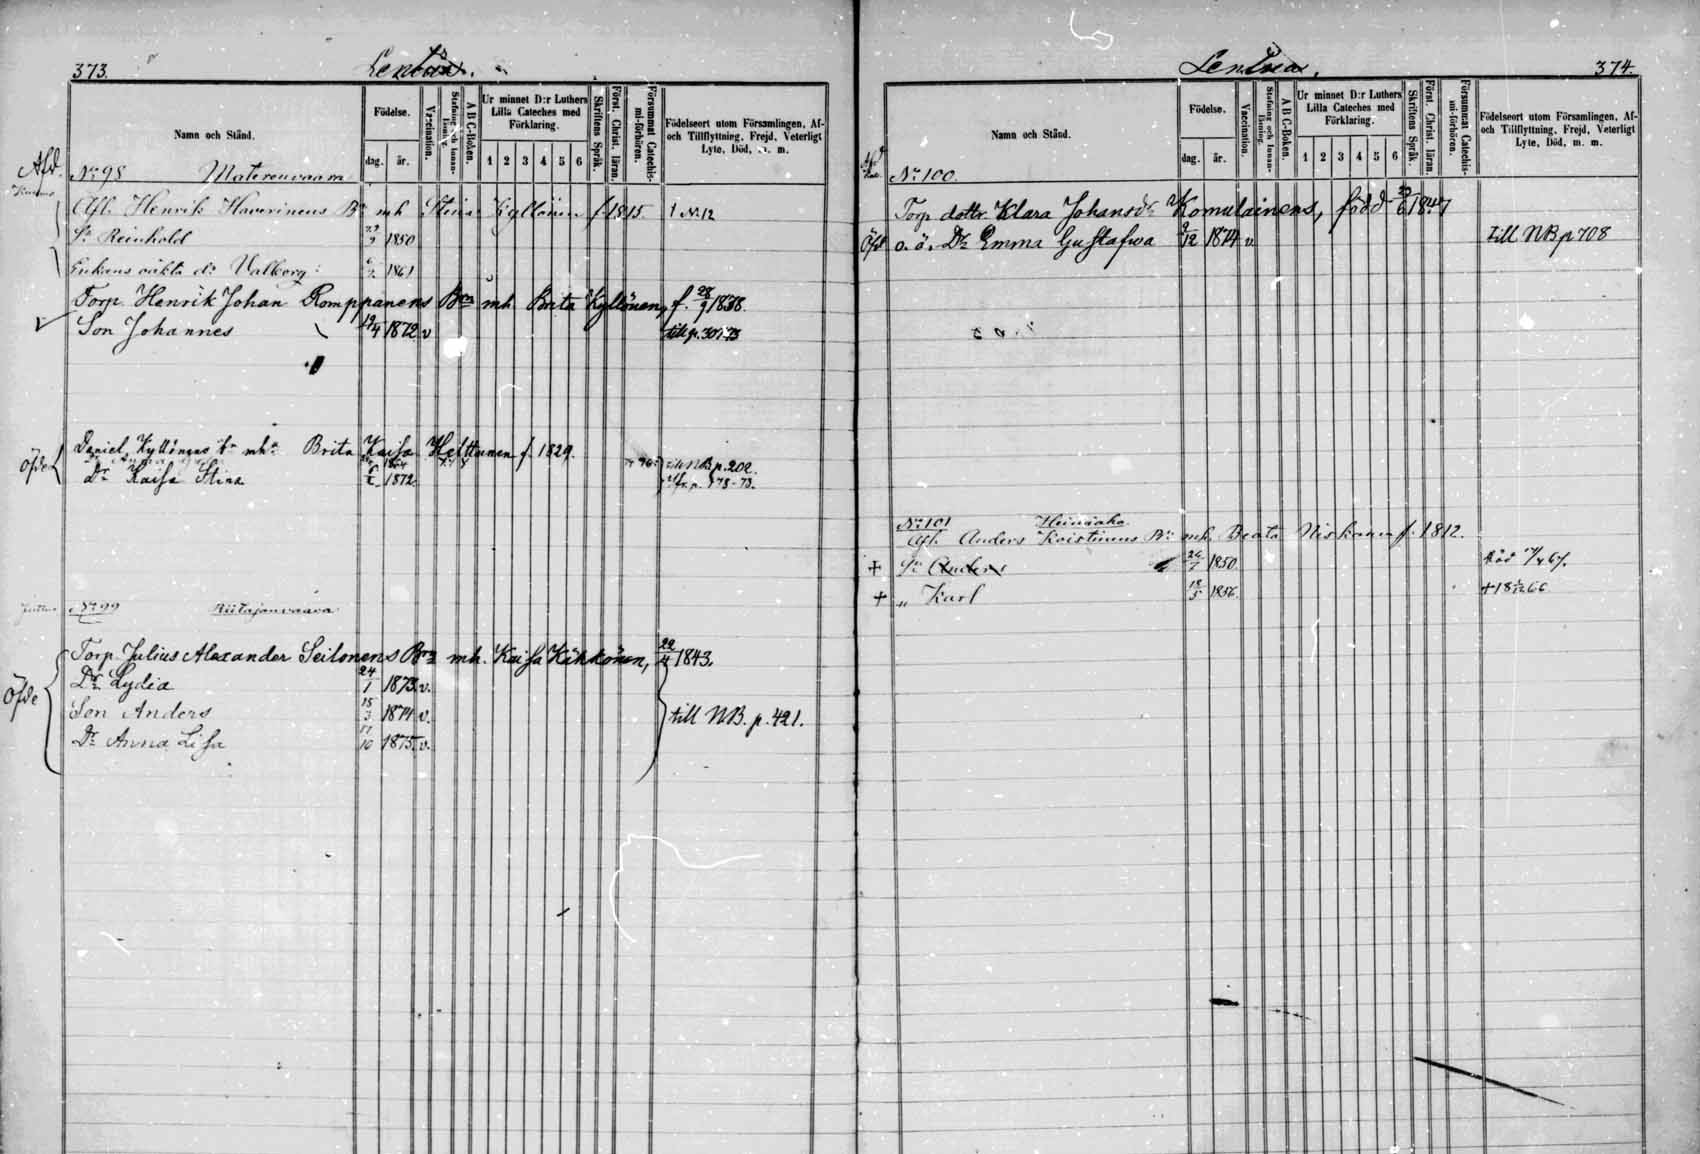 373.
Lentua.
Namn och Stånd.
Födelse.
dag.
år.
Vaccination.
Stafning och Innan-läsning.
A B C-Boken.
Ur minnet D:r Luthers Lilla Cateches med Förklaring.
1 2 3 4 5 6
Skriftens Språk.
Först. Christ. läran.
Försummat Catechis-mi-förhören.
Födelseort utom Församlingen, Af- och Tillflyttning, Frejd, Veterligt Lyte, Död, m. m.
Afd.
No 98 Materonvaara
Afl. Henrik Haverinens Br mh Stina Kyllönen f. 1815. No. 12
Sn Reinhold 1850
Enkans oäkta dr Valborg 1861
Torp. Henrik Johan Romppanens Brn mh. Brita Kyllönen, f. 28/9 1838.
Son Johannes 19/4 1872 v till p. 301-73
Daniel Kyllönens br mh. Brita Kaisa Halttunen f. 1829.
till NB p. 202.
Öfde
Dr Kaisa Stina 1872
No 99 Riitajanvaara
Torp. Julius Alexander Seilonens Brn mh. Kaisa Kähkönen, 22/4 1843.
Dr Lydia 24/1 1873. v.
Öfde
Son Anders 18/3 1874 v. till NB. p. 421.
Dr Anna Lisa 17/10 1875. v.
374.
Lentua.
Namn och Stånd.
Födelse.
dag.
år.
Vaccination.
Stafning och Innan-läsning.
A B C-Boken.
Ur minnet D:r Luthers Lilla Cateches med Förklaring.
1 2 3 4 5 6
Skriftens Språk.
Först. Christ. läran.
Försummat Catechis-mi-förhören.
Födelseort utom Församlingen, Af- och Tillflyttning, Frejd, Veterligt Lyte, Död, m. m.
No 100.
Torp. dottr. Klara Johansdr Komulainens, född 20/6 1847
Öfd o. ä. Dr Emma Gustafva 9/12 1874 v. till NB p 708
No 101 Heiniaho
Afl. Anders Koistinens Br mh. Beata Niskanen f. 1812.
+ Sn Anders 26/7 1850. död
+ „ Karl 18/5 1856. +18 66